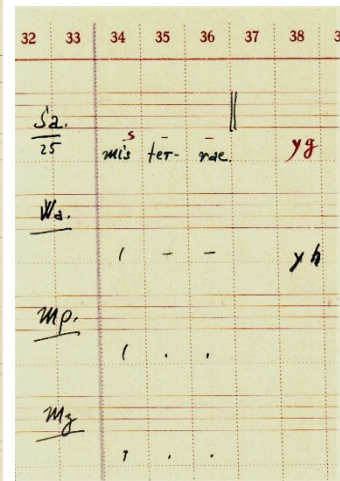 32 33 34 35 36 37 38 3
Sa. s - -
25 mis ter- rae. yg
Wa.
( - - yh
Mp.
( . .
Mg
1 . .